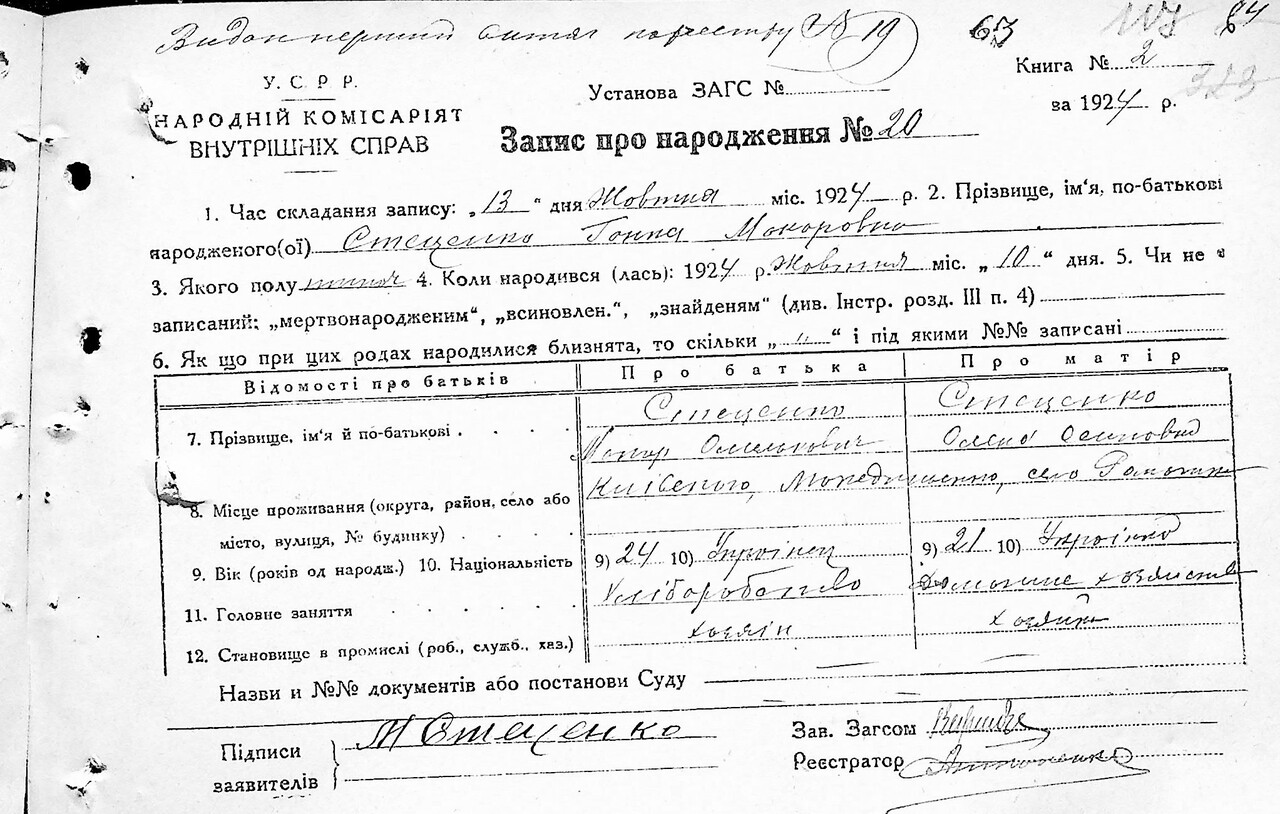 Видан перший витяг по реєстру № 19
63 84
У. С. Р. Р.
НАРОДНІЙ КОМІСАРІЯТ
ВНУТРІШНІХ СПРАВ
Установа ЗАГС №
Книга № 2
за 1924 р.
323
Запис про народження № 20
1. Час складання запису: „13“ дня Жовтня міс. 1924 р. 2. Прізвище, ім'я, по-батькові
народженого(ої) Стеценко Ганна Макаровна
3. Якого полу 4. Коли народився (лась): 1924 р. Жовтня міс. „10“ дня. 5. Чи не є
записаний: „мертвонародженим“, „всиновлен.“, „знайденям“ (див. Інстр. розд. III п. 4)
6. Як що при цих родах народилися близнята, то скільки „ “ і під якими №№ записані
Відомості про батьків Про батька Про матір
7. Прізвище, ім'я й по-батькові Стеценко Стеценко
Макар Омелькович Олена Осиповна
8. Місце проживання (округа, район, село або Київского, село
місто, вулиця, № будинку)
9. Вік (років од народж.) 10. Національність 9) 24 10) Українец 9) 21 10) Українка
11. Головне заняття Хліборобство Домашне хозяйство
12. Становище в промислі (роб., служб., хаз.) хозяін хозяйка
Назви и №№ документів або постанови Суду
Підписи
заявителів
М Стеценко
Зав. Загсом
Реєстратор